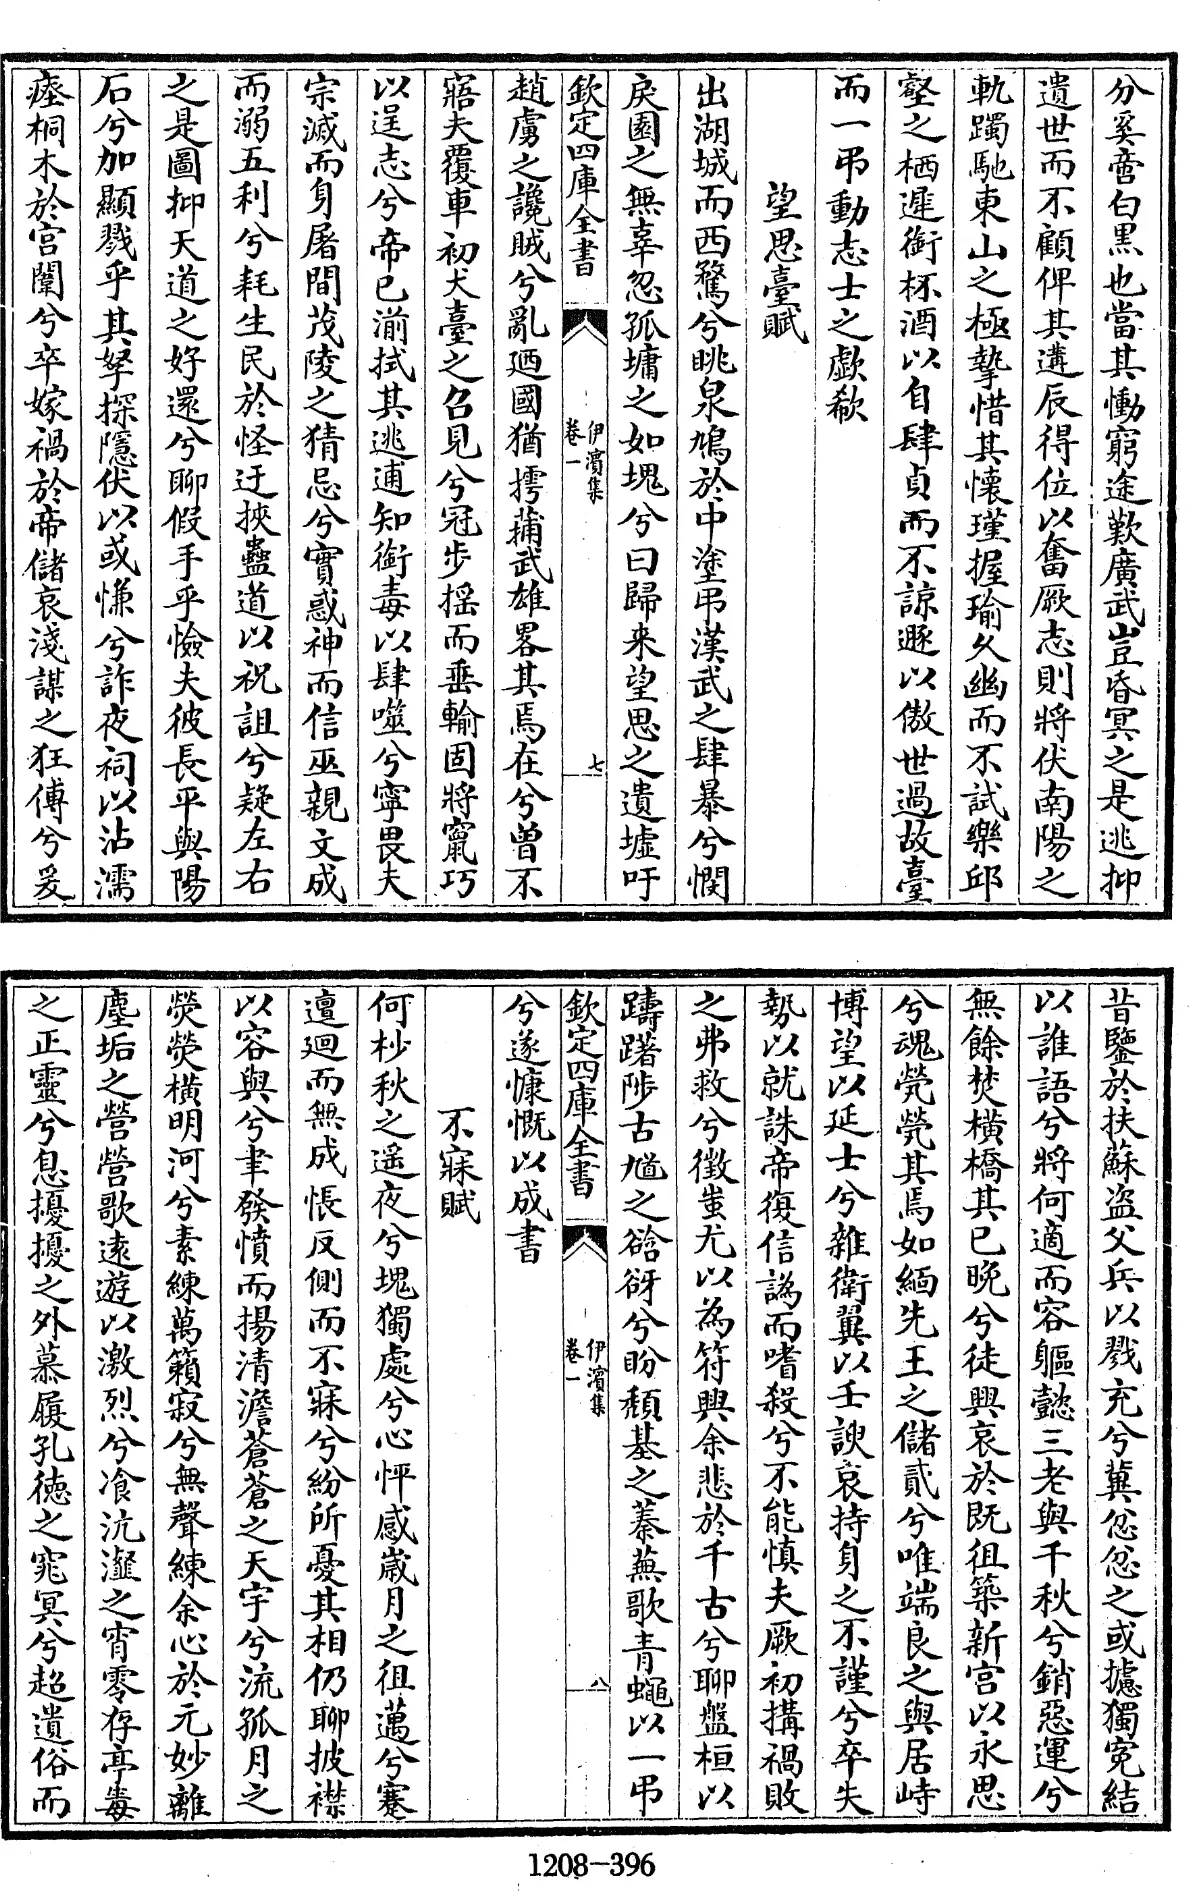 分奚啻白黒也當其慟窮途歎廣武豈昏冥之是逃抑
遺世而不顧俾其遘辰得位以奮厥志則將伏南陽之
軌躅馳東山之極摯惜其懷瑾握瑜久幽而不試樂邱
壑之栖遲銜杯酒以自肆貞而不諒遯以傲世過故臺
而一弔動志士之歔欷
望思臺賦
出湖城而西騖兮眺泉鳩於中塗弔漢武之肆暴兮憫
戾園之無辜忽孤墉之如塊兮曰歸来望思之遺墟吁
欽定四庫全書
伊濱集
卷一
七
趙虜之讒賊兮亂廼國猶摴蒱武雄畧其焉在兮曾不
寤夫覆車初犬臺之召見兮冠步揺而垂輸固將竄巧
以逞志兮帝已湔拭其逃逋知銜毒以肆噬兮寧畏夫
宗滅而身屠間茂陵之猜忌兮實惑神而信巫親文成
而溺五利兮耗生民於怪迂挾蠱道以祝詛兮疑左右
之是圖抑天道之好還兮聊假手乎憸夫彼長平與陽
石兮加顯戮乎其孥探隱伏以或慊兮詐夜祠以沾濡
瘞桐木於宫闈兮卒嫁禍於帝儲哀淺謀之狂傅兮爰
昔鑒於扶蘇盗父兵以戮充兮冀忿忿之或攄獨寃結
以誰語兮將何適而容軀懿三老與千秋兮銷惡運兮
無餘焚横橋其已晩兮徒興哀於既徂築新宫以永思
兮魂煢煢其焉如緬先王之儲貳兮唯端良之與居峙
博望以延士兮雜衛翼以壬諛哀持身之不謹兮卒失
勢以就誅帝復信譌而嗜殺兮不能慎夫厥初搆禍敗
之弗救兮徵蚩尤以為符興余悲於千古兮聊盤桓以
躊躇陟古馗之谽谺兮盼頽基之蓁蕪歌青蠅以一弔
欽定四庫全書
伊濱集
卷一
八
兮遂慷慨以成書
不寐賦
何杪秋之遥夜兮塊獨處兮心怦感嵗月之徂邁兮蹇
邅迴而無成悵反側而不寐兮紛所憂其相仍聊披襟
以容與兮聿發憤而揚清澹蒼蒼之天宇兮流孤月之
熒熒横明河兮素練萬籟寂兮無聲練余心於元妙離
塵垢之營營歌遠遊以激烈兮飡沆瀣之宵零存亭毒
之正靈兮息擾擾之外慕履孔德之窕冥兮超遺俗而
1208-396